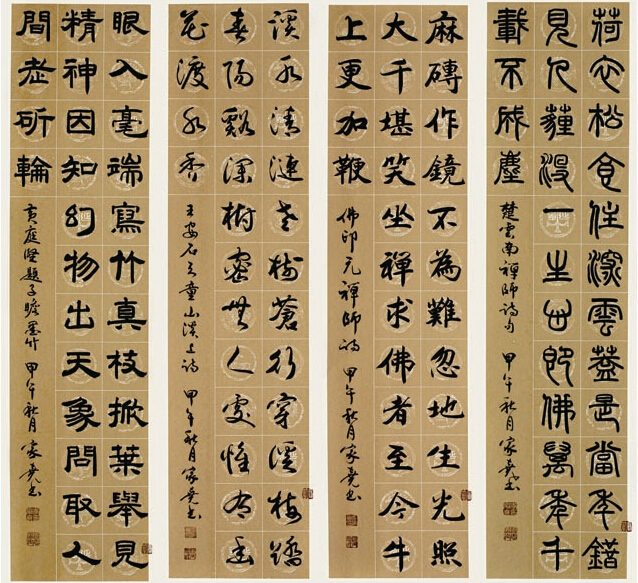 荷衣松食住深雲蓋是當年錯
見人薶沒一生心即佛萬年千
載不成塵 楚雲南禪師詩句 甲午秋月家堯書
麻磚作鏡不為難忽地生光照
大千堪笑坐禪求佛者至今牛
上更加鞭 佛印元禪師詩 甲午秋月家堯書
溪水清漣老樹蒼行穿溪樹踏
春陽谿深樹密無人處惟有幽
花渡水香 王安石天童山溪上詩 甲午秋月家堯書
眼入毫端寫竹真枝掀葉舉見
精神因知幻物出天象問取人
間老斫輪 黃庭堅題子瞻墨竹 甲午秋月家堯書